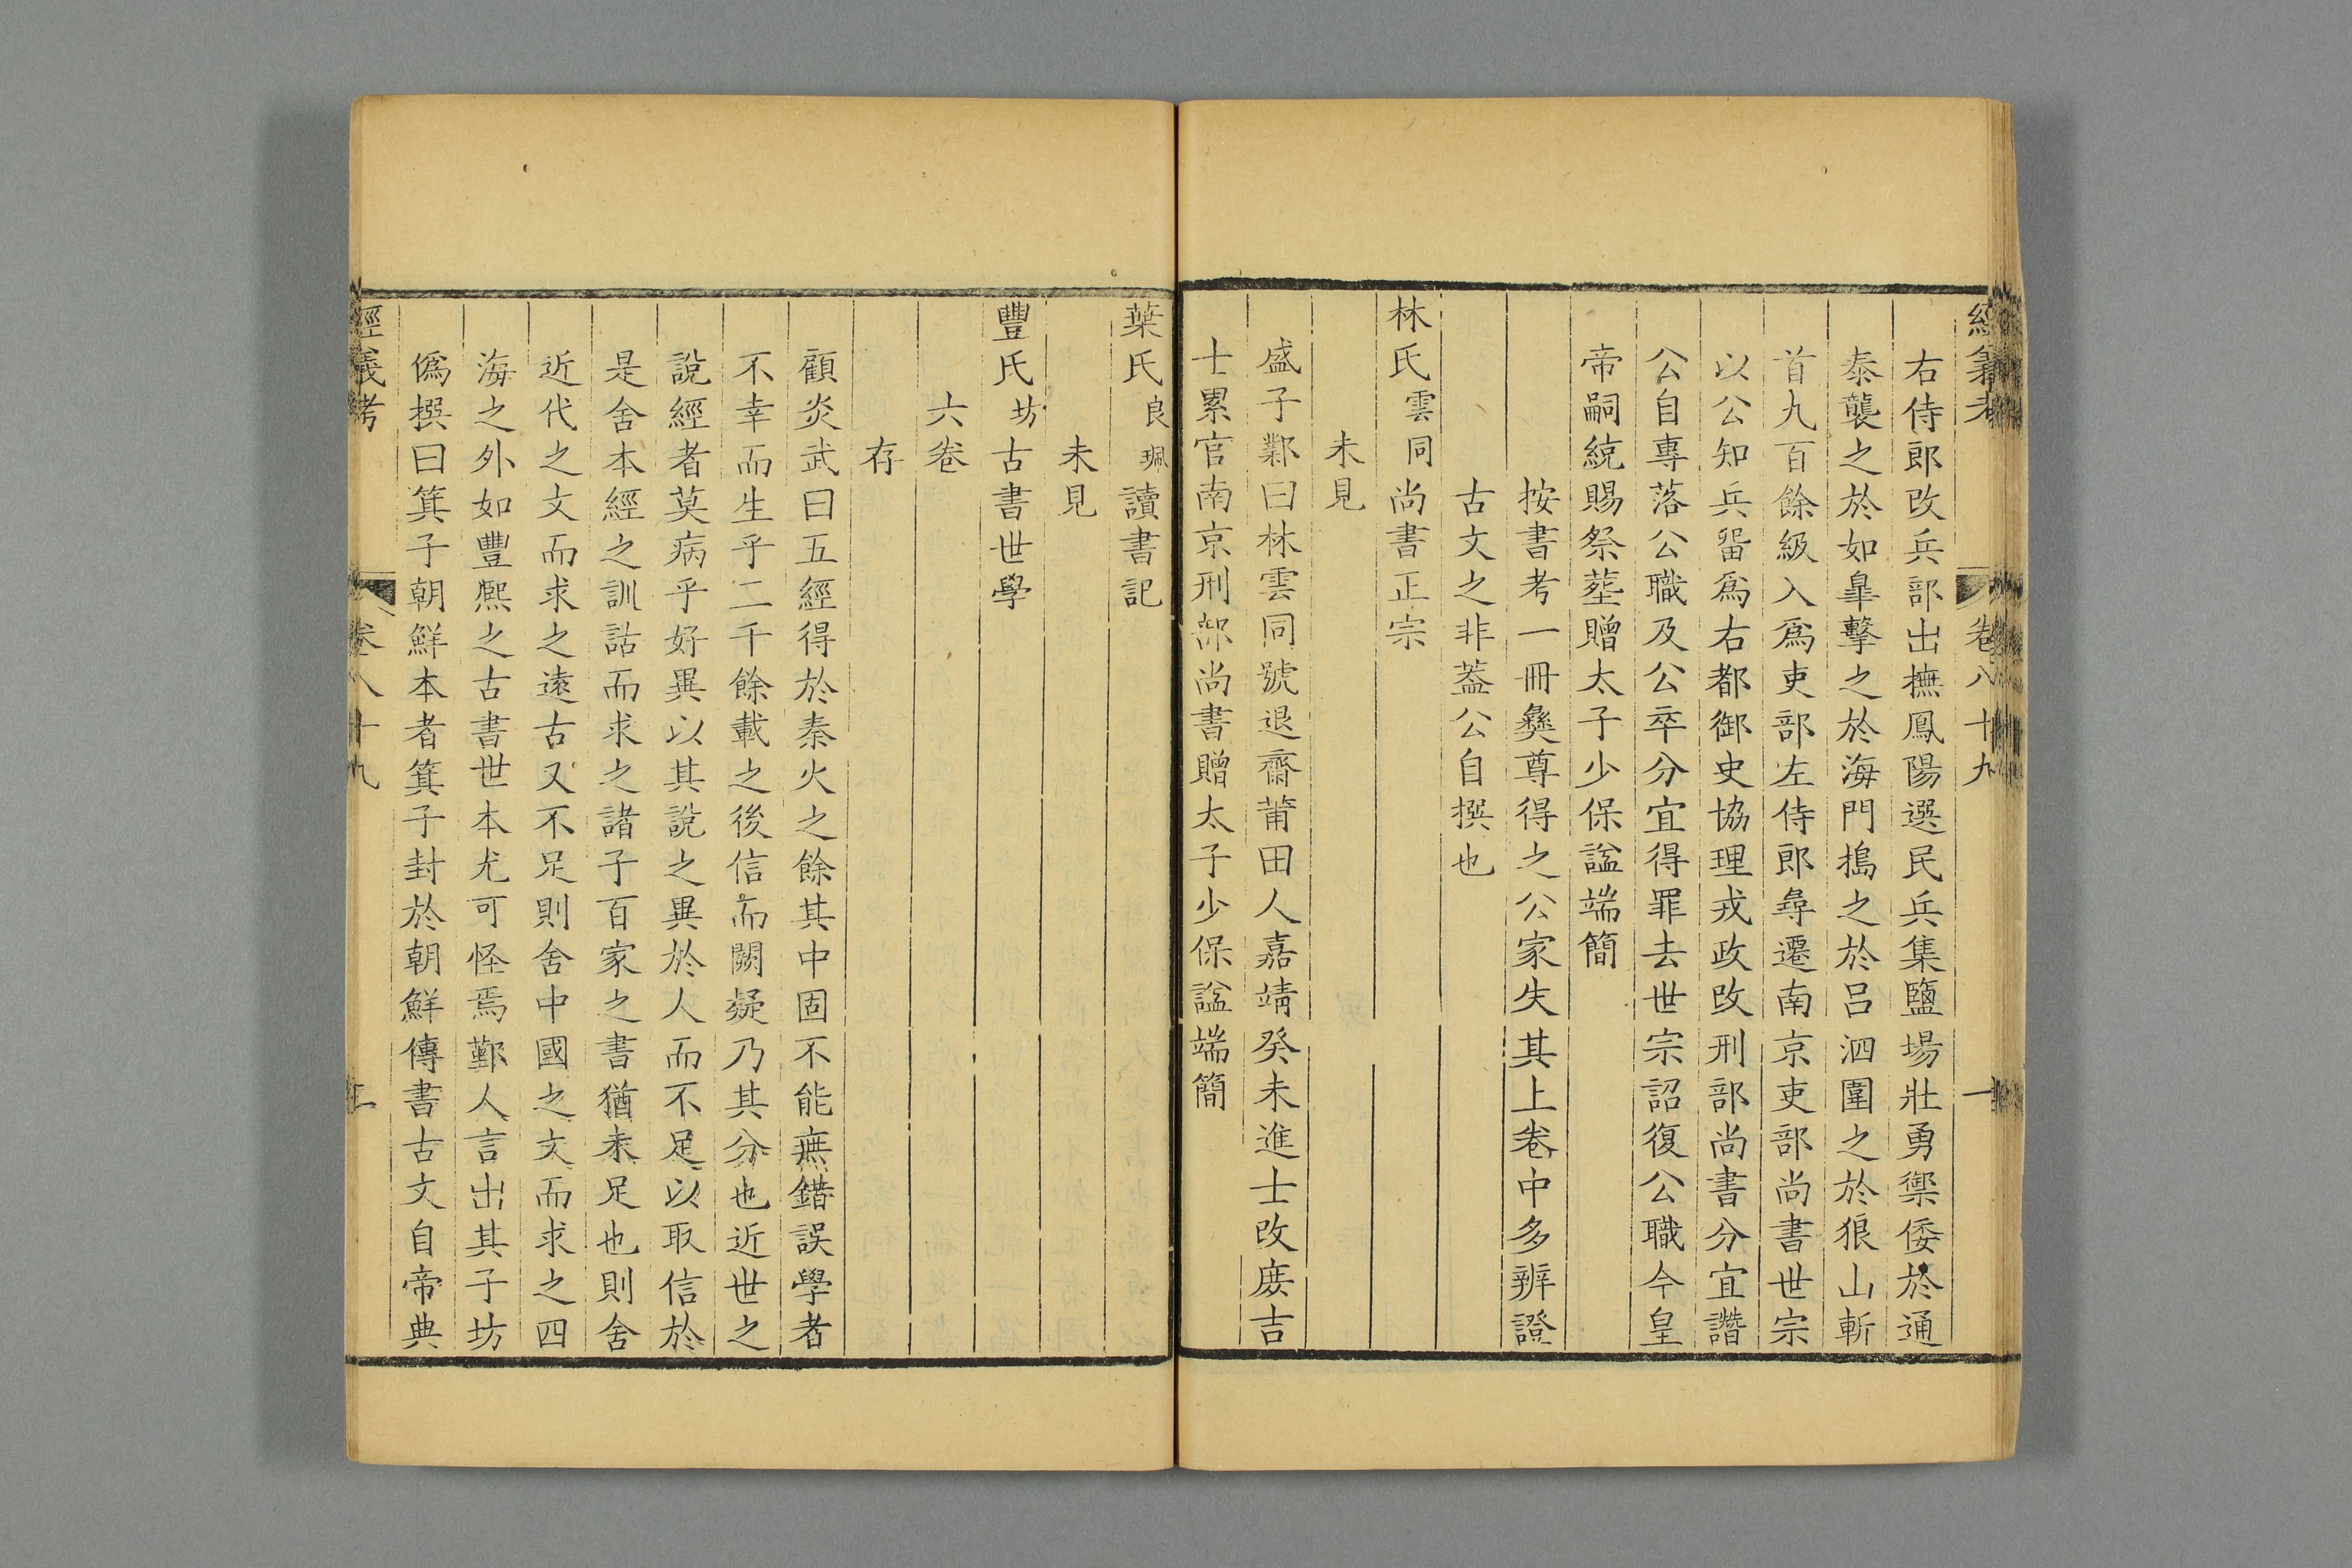 經義考 卷八十九 一
右侍郎改兵部出撫鳳陽選民兵集鹽場壯勇禦倭於通
泰襲之於如臯擊之於海門搗之於呂泗圍之於狼山斬
首九百餘級入爲吏部左侍郎尋遷南京吏部尚書世宗
以公知兵畱爲右都御史協理戎政改刑部尚書分宜譖
公自專落公職及公卒分宜得罪去世宗詔復公職今皇
帝嗣統賜祭塟贈太子少保諡端簡
按書考一冊彝尊得之公家失其上卷中多辨證
古文之非葢公自撰也
林氏雲同尚書正宗
未見
盛子鄴曰林雲同號退齋莆田人嘉靖癸未進士改庻吉
士累官南京刑部尚書贈太子少保諡端簡
葉氏良珮讀書記
未見
豐氏坊古書世學
六卷
存
顧炎武曰五經得於秦火之餘其中固不能無錯誤學者
不幸而生乎二千餘載之後信而闕疑乃其分也近世之
說經者莫病乎好異以其說之異於人而不足以取信於
是舍本經之訓詁而求之諸子百家之書猶未足也則舍
近代之文而求之遠古又不足則舍中國之文而求之四
海之外如豐熙之古書世本尤可怪焉鄞人言出其子坊
僞撰曰箕子朝鮮本者箕子封於朝鮮傳書古文自帝典
經義考 卷八十九 二